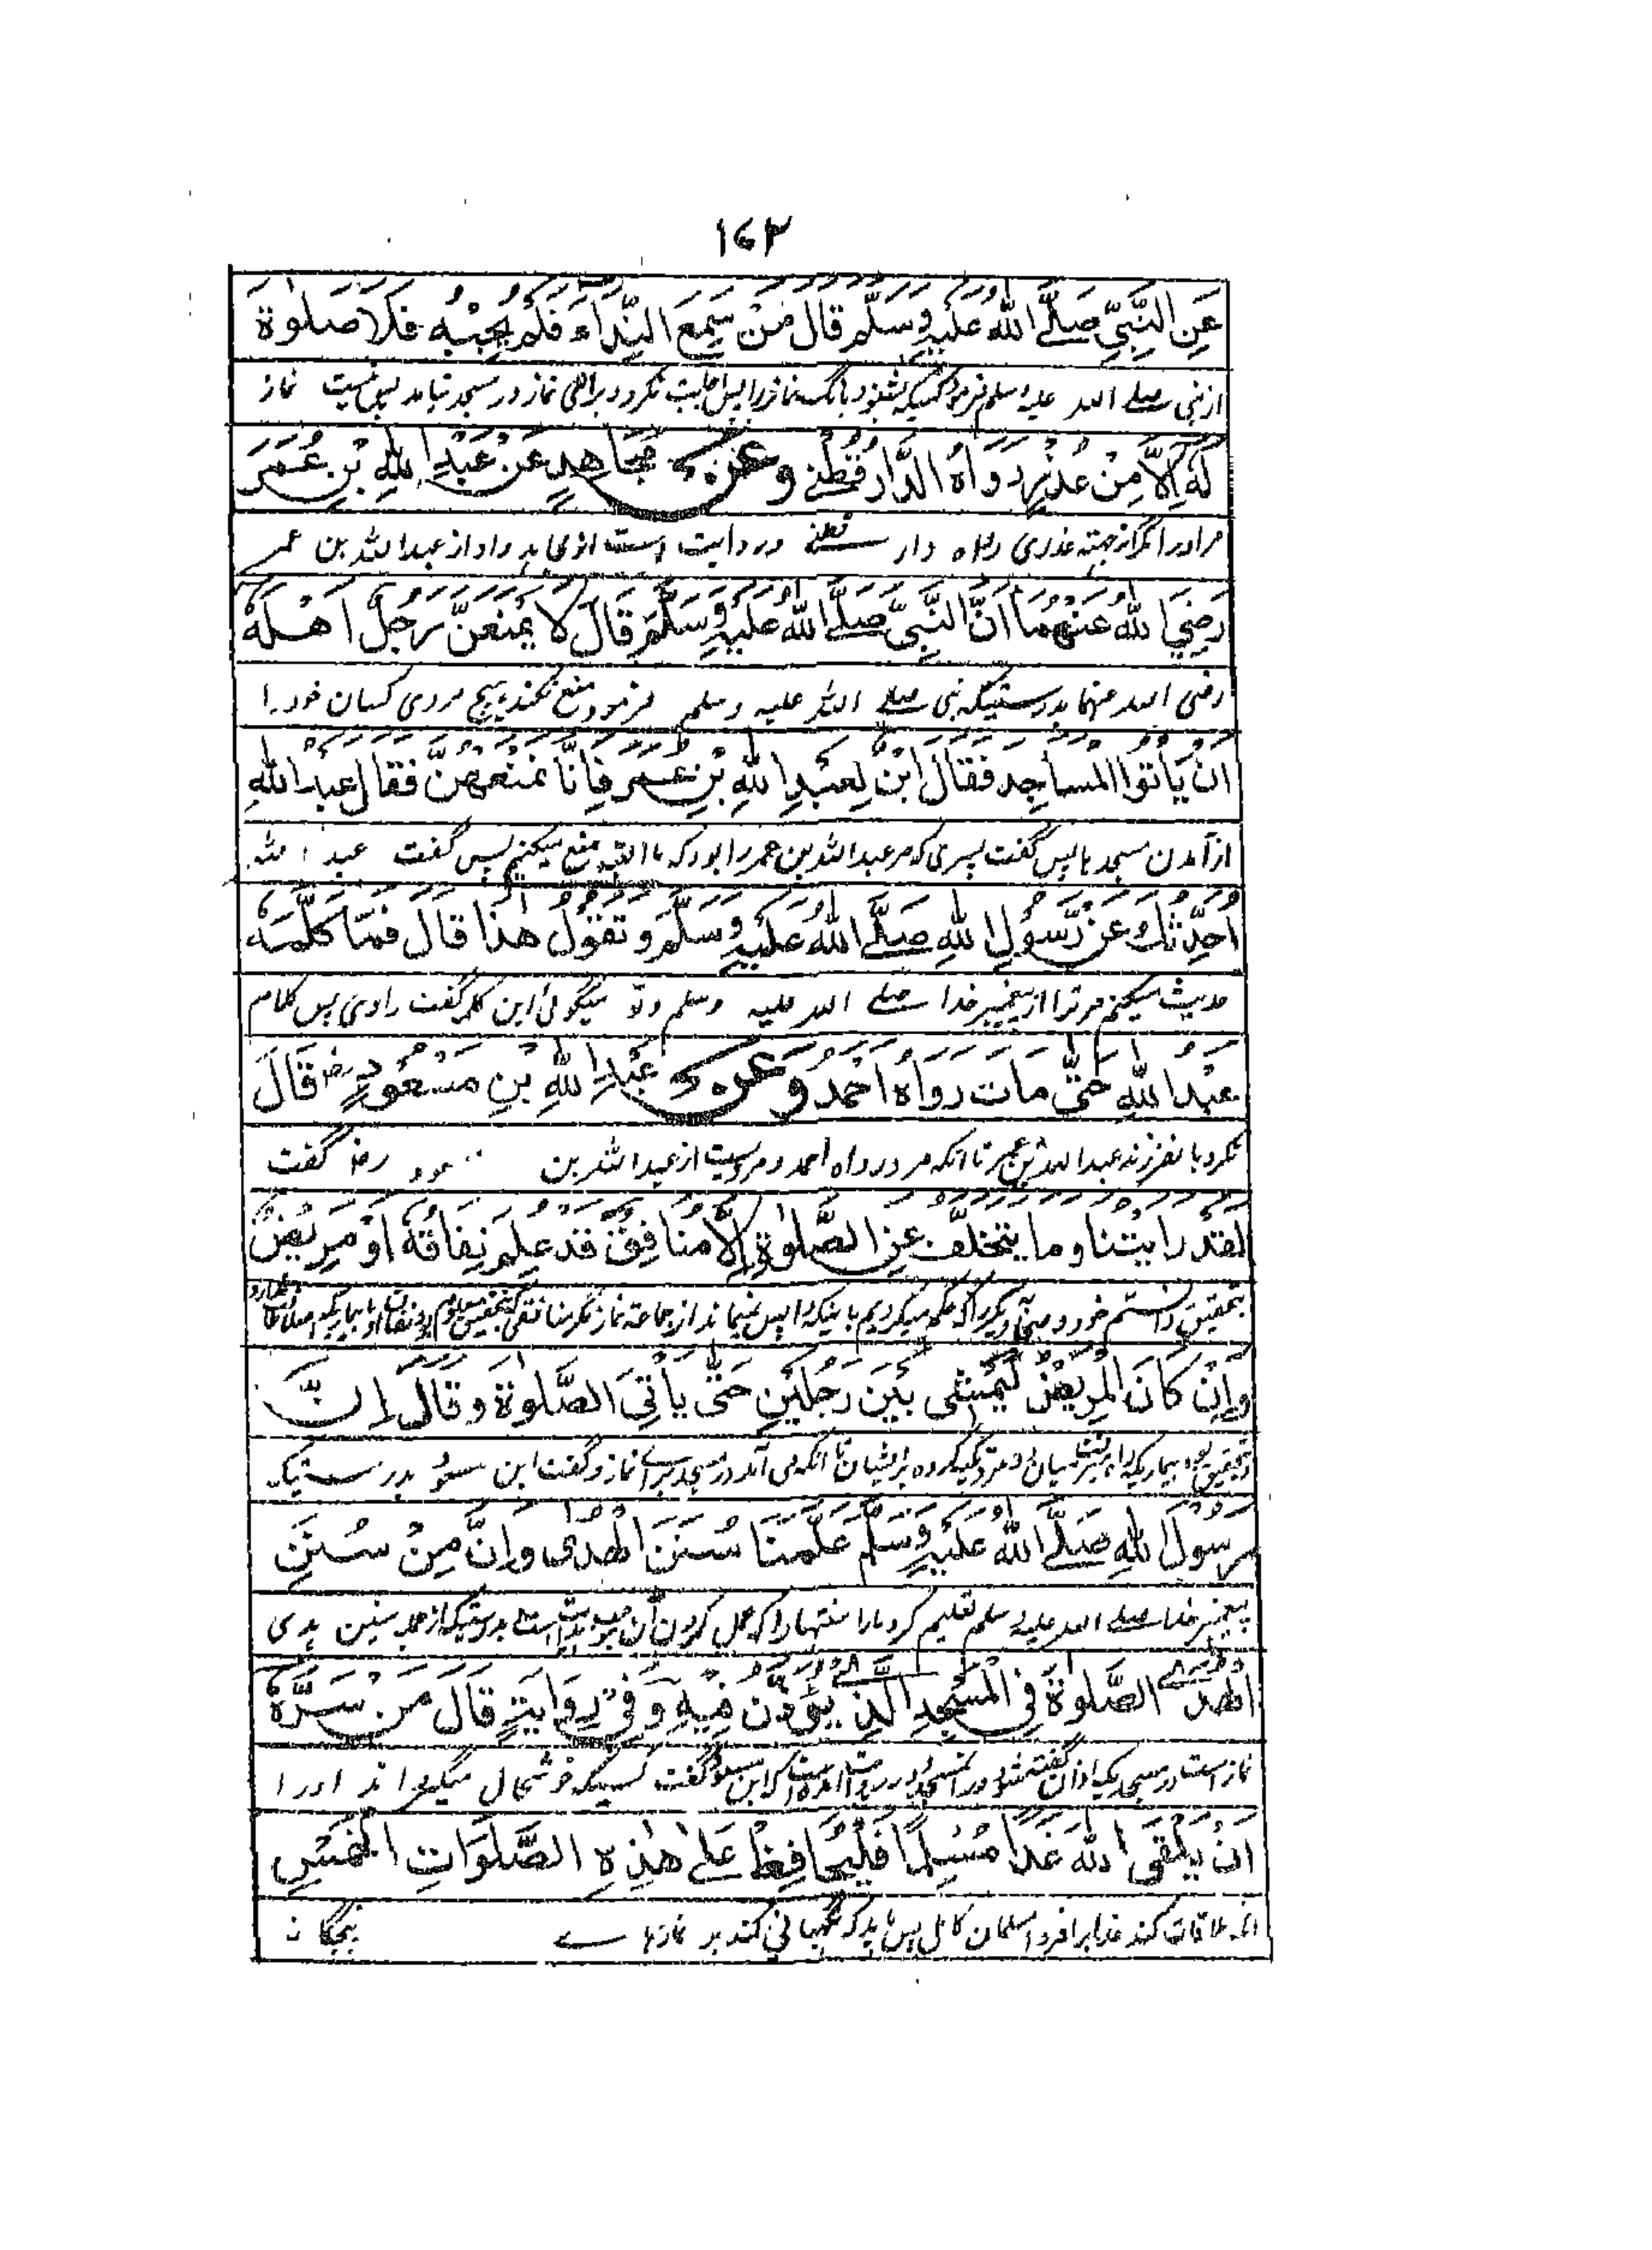 ١٤٢
عَنِ النَّبِيِّ صَلَّى اللهُ عَلَيْهِ وَسَلَّمَ قَالَ مَنْ سَمِعَ النِّدَاءَ فَلَمْ يُجِبْهُ فَلَا صَلٰوةَ
از نبی صلے الله علیه وسلم فرمود کسیکه بشنود بانگ نماز را پس اجابت نکرد و برای نماز در مسجد نیامد پس نیست نماز
لَهُ إِلَّا مِنْ عُذْرٍ رَوَاهُ الدَّارَقُطْنِي وَعَنْ مُجَاهِدٍ عَنْ عَبْدِ اللهِ بْنِ عُمَرَ
مر اورا مگر از جهته عذری رواه دار قطنے و روایت است از مجاهد و او از عبدالله بن عمر
رَضِيَ اللهُ عَنْهُمَا أَنَّ النَّبِيَّ صَلَّى اللهُ عَلَيْهِ وَسَلَّمَ قَالَ لَا يَمْنَعَنَّ رَجُلٌ أَهْلَهُ
رضی الله عنهما بدرستیکه نبی صلے الله علیه وسلم فرمود منع نکند هیچ مردی کسان خود را
أَنْ يَأْتُوا الْمَسَاجِدَ فَقَالَ ابْنٌ لِعَبْدِ اللهِ بْنِ عُمَرَ فَإِنَّا نَمْنَعُهُنَّ فَقَالَ عَبْدُ اللهِ
از آمدن مسجد ها پس گفت پسری که مر عبدالله بن عمر را بود که ما البته منع میکنیم پس گفت عبد الله
أُحَدِّثُكَ عَنْ رَّسُولِ اللهِ صَلَّى اللهُ عَلَيْهِ وَسَلَّمَ وَتَقُولُ هٰذَا قَالَ فَمَا كَلَّمَهُ
حدیث میکنم مر ترا از پیغمبر خدا صلے الله علیه وسلم و تو میگوئی این کلمه گفت راوی پس کلام
عَبْدُ اللهِ حَتّٰى مَاتَ رَوَاهُ أَحْمَدُ وَعَنْ عَبْدِ اللهِ بْنِ مَسْعُودٍ رض قَالَ
نکرد با فرزند عبدالله بن عمر تا آنکه مرد رواه احمد و مرویست از عبدالله بن مسعود رض گفت
لَقَدْ رَأَيْتُنَا وَمَا يَتَخَلَّفُ عَنِ الصَّلٰوةِ إِلَّا مُنَافِقٌ قَدْ عُلِمَ نِفَاقُهُ أَوْ مَرِيضٌ
بتحقیق دانستم خود و صحابه دیگر را که پس نمیماند از جماعة نماز مگر منافقی
وَإِنْ كَانَ الْمَرِيضُ لَيَمْشِي بَيْنَ رَجُلَيْنِ حَتّٰى يَأْتِيَ الصَّلٰوةَ وَقَالَ إِنَّ
وبتحقیق بود بیماریکه راه میرفت میان دو مرد تکیه کرده بر ایشان تا آنکه می آمد در مسجد برای نماز و گفت ابن مسعود بدرستیکه
رَسُولَ اللهِ صَلَّى اللهُ عَلَيْهِ وَسَلَّمَ عَلَّمَنَا سُنَنَ الْهُدٰى وَإِنَّ مِنْ سُنَنِ
پیغمبر خدا صلے الله علیه وسلم تعلیم کرد مارا سنتها را که عمل کردن آن موجب هدایت است بدرستیکه از جمله سنن هدی
الْهُدٰى الصَّلٰوةَ فِي الْمَسْجِدِ الَّذِي يُؤَذَّنُ فِيْهِ وَفِي رِوَايَةٍ قَالَ مَنْ سَرَّهُ
نماز است در مسجدیکه اذان گفته شود در آن مسجد و در روایت آمده است که ابن مسعود گفت کسیکه خوشحال میگرداند اورا
أَنْ يَلْقَى اللهَ غَدًا مُسْلِمًا فَلْيُحَافِظْ عَلٰى هٰذِهِ الصَّلَوَاتِ الْخَمْسِ
آنکه ملاقات کند خدا را فردا مسلمان کامل پس باید که نگهبانی کند بر نمازهاے پنجگانه